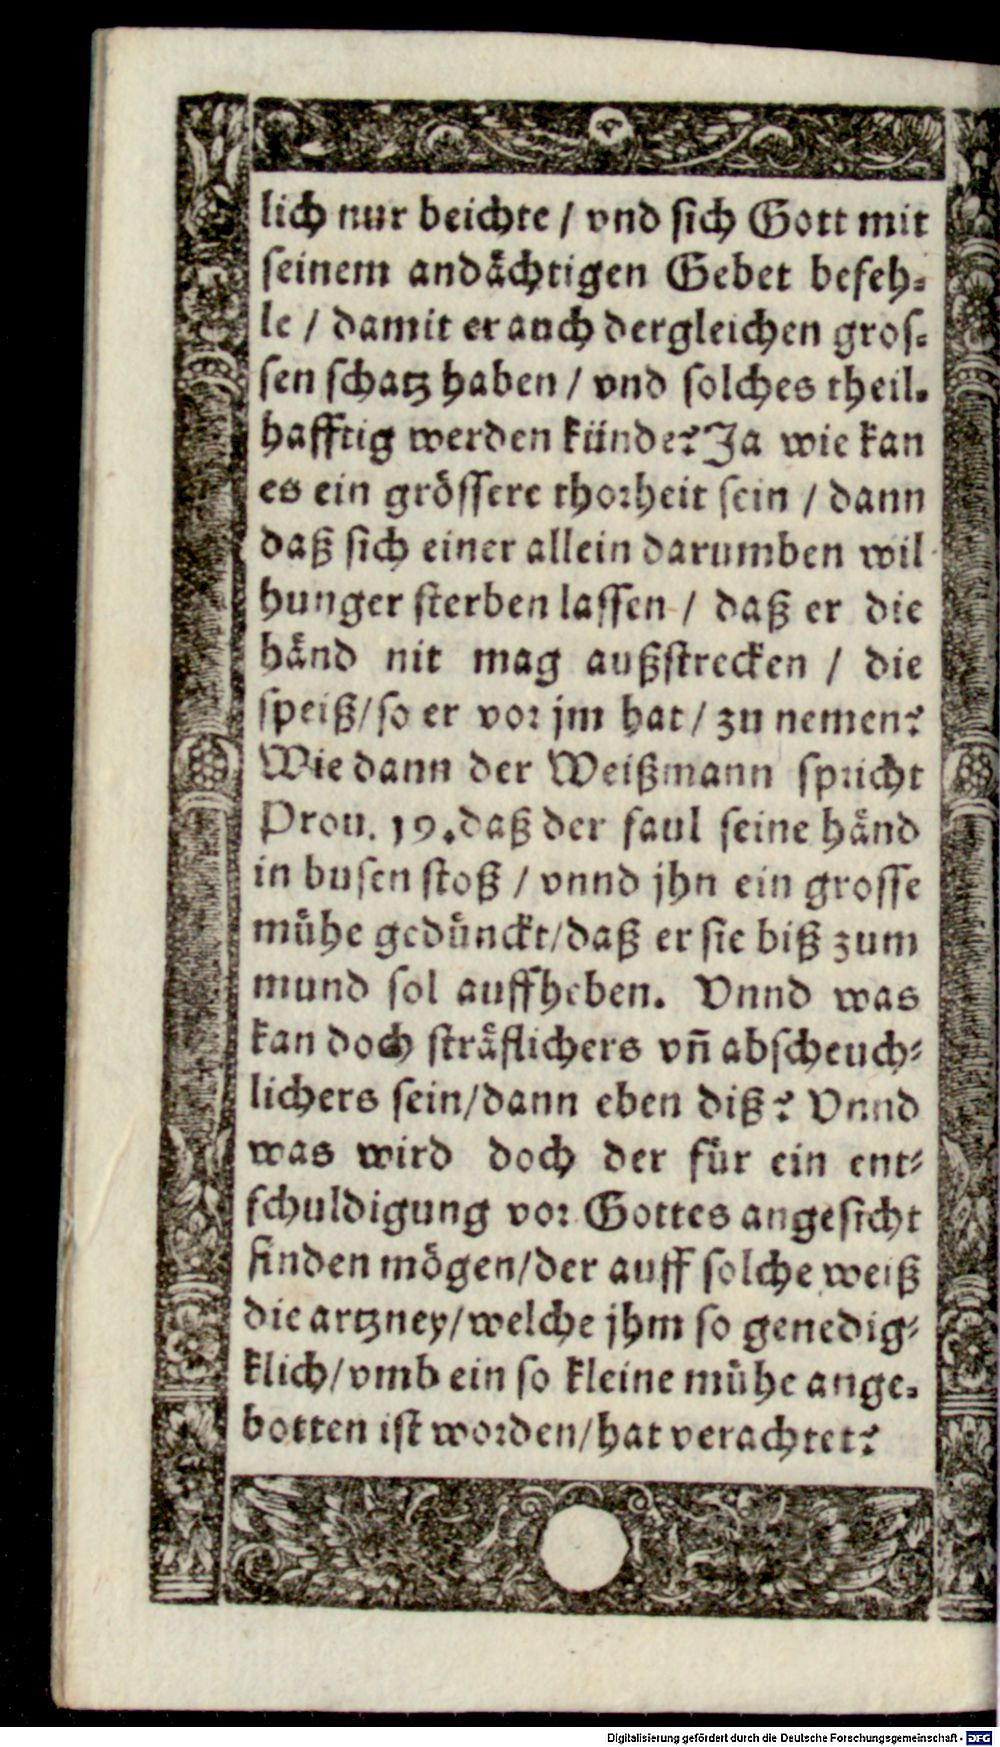 lich nur beichte / vnd sich Gott mit
seinem andåchtigen Gebet befeh⸗
le / damit er auch dergleichen gros⸗
sen schatz haben / vnd solches theil⸗
hafftig werden künde? Ja wie kan
es ein grössere thorheit sein / dann
daß sich einer allein darumben wil
hunger sterben lassen / daß er die
hånd nit mag außstrecken / die
speiß/so er vor jm hat / zu nemen?
Wie dann der Weißmann spricht
Prou. 19. daß der faul seine hånd
in busen stoß / vnnd jhn ein grosse
mühe gedünckt/daß er sie biß zum
mund sol auffheben. Vnnd was
kan doch stråflichers vñ abscheuch⸗
lichers sein/dann eben diß? Vnnd
was wird doch der für ein ent⸗
schuldigung vor Gottes angesicht
finden mögen/der auff solche weiß
die artzney/welche jhm so genedig⸗
klich/vmb ein so kleine mühe ange⸗
botten ist worden/hat verachtet?
Digitalisierung gefördert durch die Deutsche Forschungsgemeinschaft - DFG